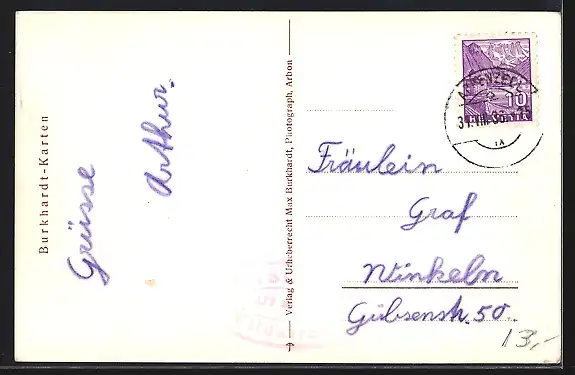 Burkhardt-Karten
Grüsse
Arthur.
Verlag & Urheberrecht Max Burkhardt, Photograph, Arbon
APPENZELL
10
HELVETIA
Fräulein
Graf
Winkeln
Gübsenstr. 50
13,-